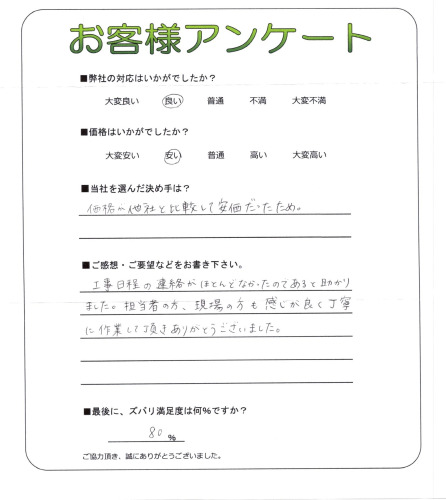 お客様アンケート
■弊社の対応はいかがでしたか？
大変良い 良い 普通 不満 大変不満
■価格はいかがでしたか？
大変安い 安い 普通 高い 大変高い
■当社を選んだ決め手は？
価格が他社と比較して安価だったため。
■ご感想・ご要望などをお書き下さい。
工事日程の連絡がほとんどなかったのであると助かり
ました。担当者の方、現場の方も感じが良く丁寧
に作業して頂きありがとうございました。
■最後に、ズバリ満足度は何％ですか？
80 ％
ご協力頂き、誠にありがとうございました。